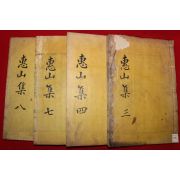 惠山集 三
惠山集 四
惠山集 七
惠山集 八